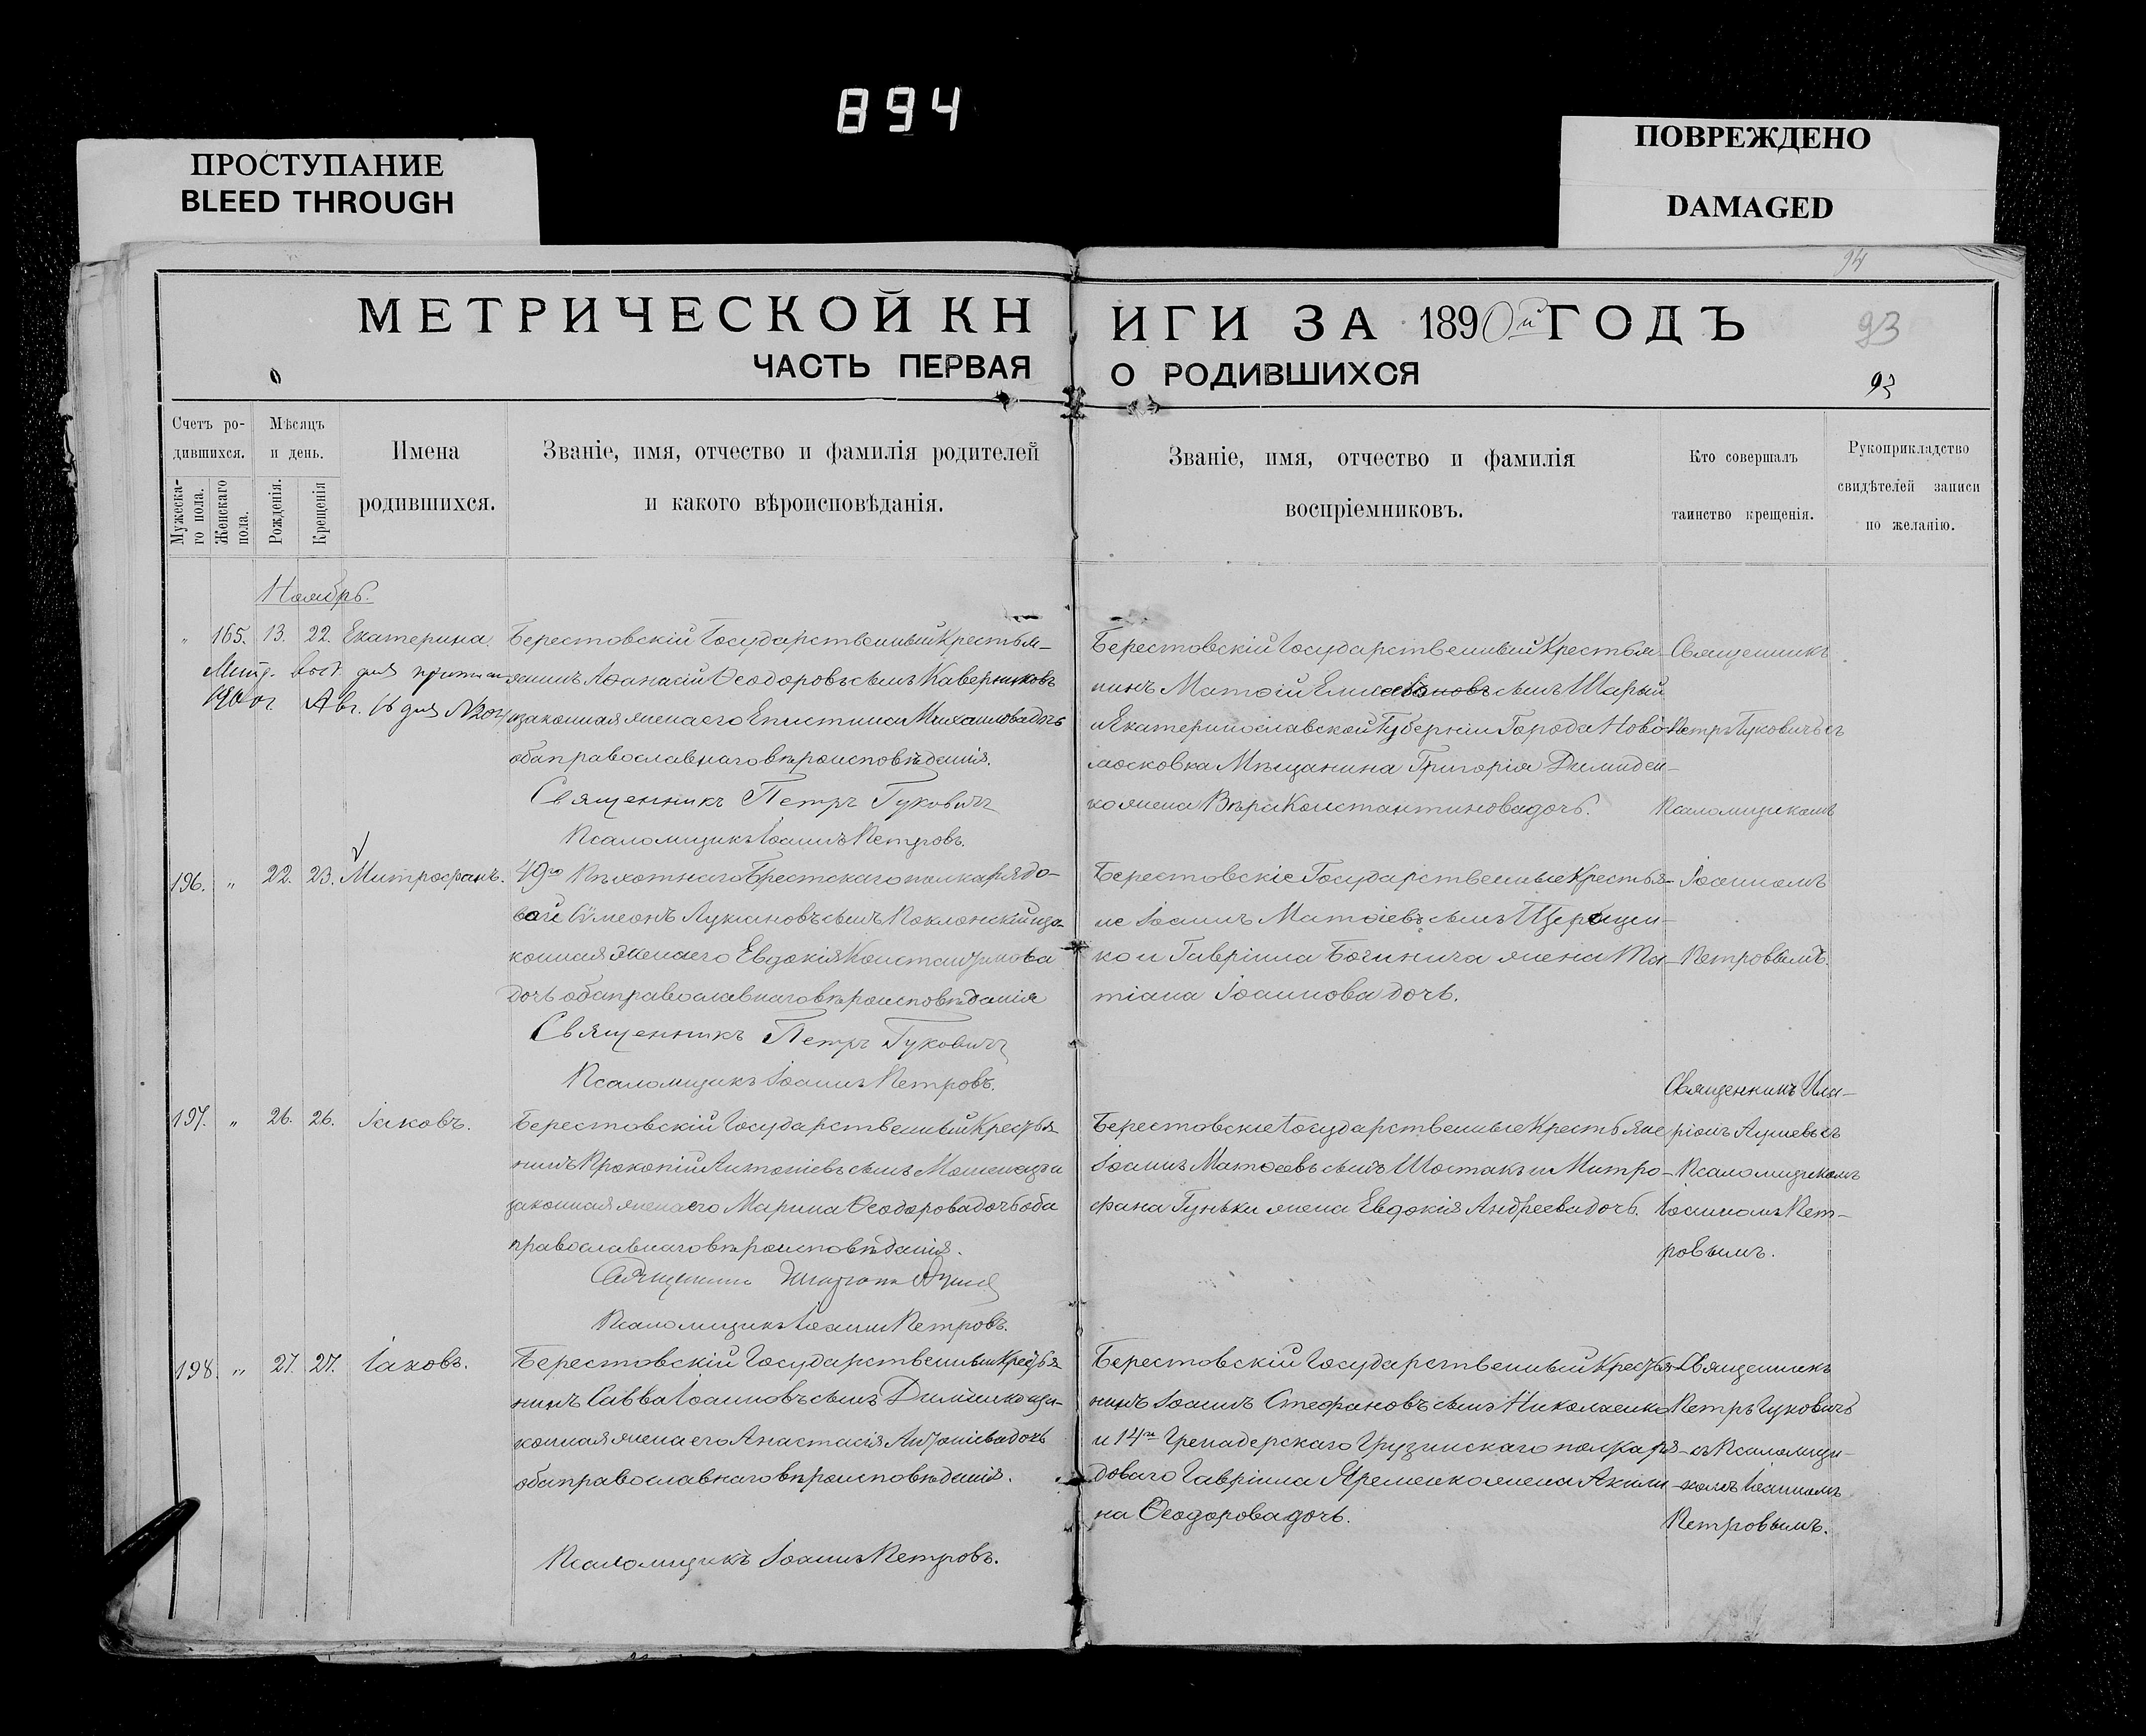 894
ПРОСТУПАНИЕ
BLEED THROUGH
ПОВРЕЖДЕНО
DAMAGED
94
МЕТРИЧЕСКОЙ КНИГИ ЗА 1890й ГОДЪ
93
ЧАСТЬ ПЕРВАЯ О РОДИВШИХСЯ
93
Счетъ ро-
дившихся.
Мужеска-
го пола.
Женскаго
пола.
Мѣсяцъ
и день.
Рожденія.
Крещенія
Имена
родившихся.
Званіе, имя, отчество и фамилія родителей
и какого вѣроисповѣданія.
Званіе, имя, отчество и фамилія
воспріемниковъ.
Кто совершалъ
таинство крещенія.
Рукоприкладство
свидѣтелей записи
по желанію.
Ноябрь.
" 165. 13. 22. Екатерина.
Берестовскій Государственный Крестья-
нинъ Аѳанасій Ѳеодоровъ сынъ Каверниковъ
и законная жена его Епистима Михаилова дочь
оба православнаго вѣроисповѣданія.
Священникъ Петръ Гуковичъ
Псаломщикъ Іоаннъ Петровъ.
Берестовскій Государственный Крестья-
нинъ Матѳій сынъ Шарый
и Екатеринославской Губерніи Города Ново-
московка Мѣщанина Григорія Димиден-
ко жена Вѣра Константинова дочь.
Священникъ
Петръ Гуковичъ съ
Псаломщикомъ
Іоанномъ
Петровымъ.
196. " 22. 23. Митрофанъ.
49го Пѣхотнаго Брестскаго полка рядо-
вой Сѵмеонъ Лукіановъ сынъ Поклонскій и за-
конная жена его Евдокія Константинова
дочь оба православнаго вѣроисповѣданія
Священникъ Петръ Гуковичъ
Псаломщикъ Іоаннъ Петровъ.
Берестовскіе Государственные Крестья-
не Іоаннъ Матѳіевъ сынъ
ко и Гавріила Богинича жена Та-
тіана Іоаннова дочь.
197. " 26. 26. Іаковъ.
Берестовскій Государственный Крестья-
нинъ Прокопій Антоніевъ сынъ и
законная жена его Марина Ѳеодорова дочь оба
православнаго вѣроисповѣданія.
Священникъ
Псаломщикъ Іоаннъ Петровъ.
Берестовскіе Государственные Крестьяне
Іоаннъ Матѳеевъ сынъ Шостакъ и Митро-
фана Гуньки жена Евдокія Андреева дочь.
Священникъ Ила-
ріонъ съ
Псаломщикомъ
Іоанномъ Пет-
ровымъ.
198. " 27. 27. Іаковъ.
Берестовскій Государственный Крестья-
нинъ Савва Іоанновъ сынъ и за-
конная жена его Анастасія Антоніева дочь
оба православнаго вѣроисповѣданія.
Псаломщикъ Іоаннъ Петровъ.
Берестовскій Государственный Крестья-
нинъ Іоаннъ Стефановъ сынъ Николаенко
и 14го Гренадерскаго Грузинскаго полка ря-
доваго Гавріила Яременко жена Акили-
на Ѳеодорова дочь.
Священникъ
Петръ Гуковичъ
съ Псаломщи-
комъ Іоанномъ
Петровымъ.